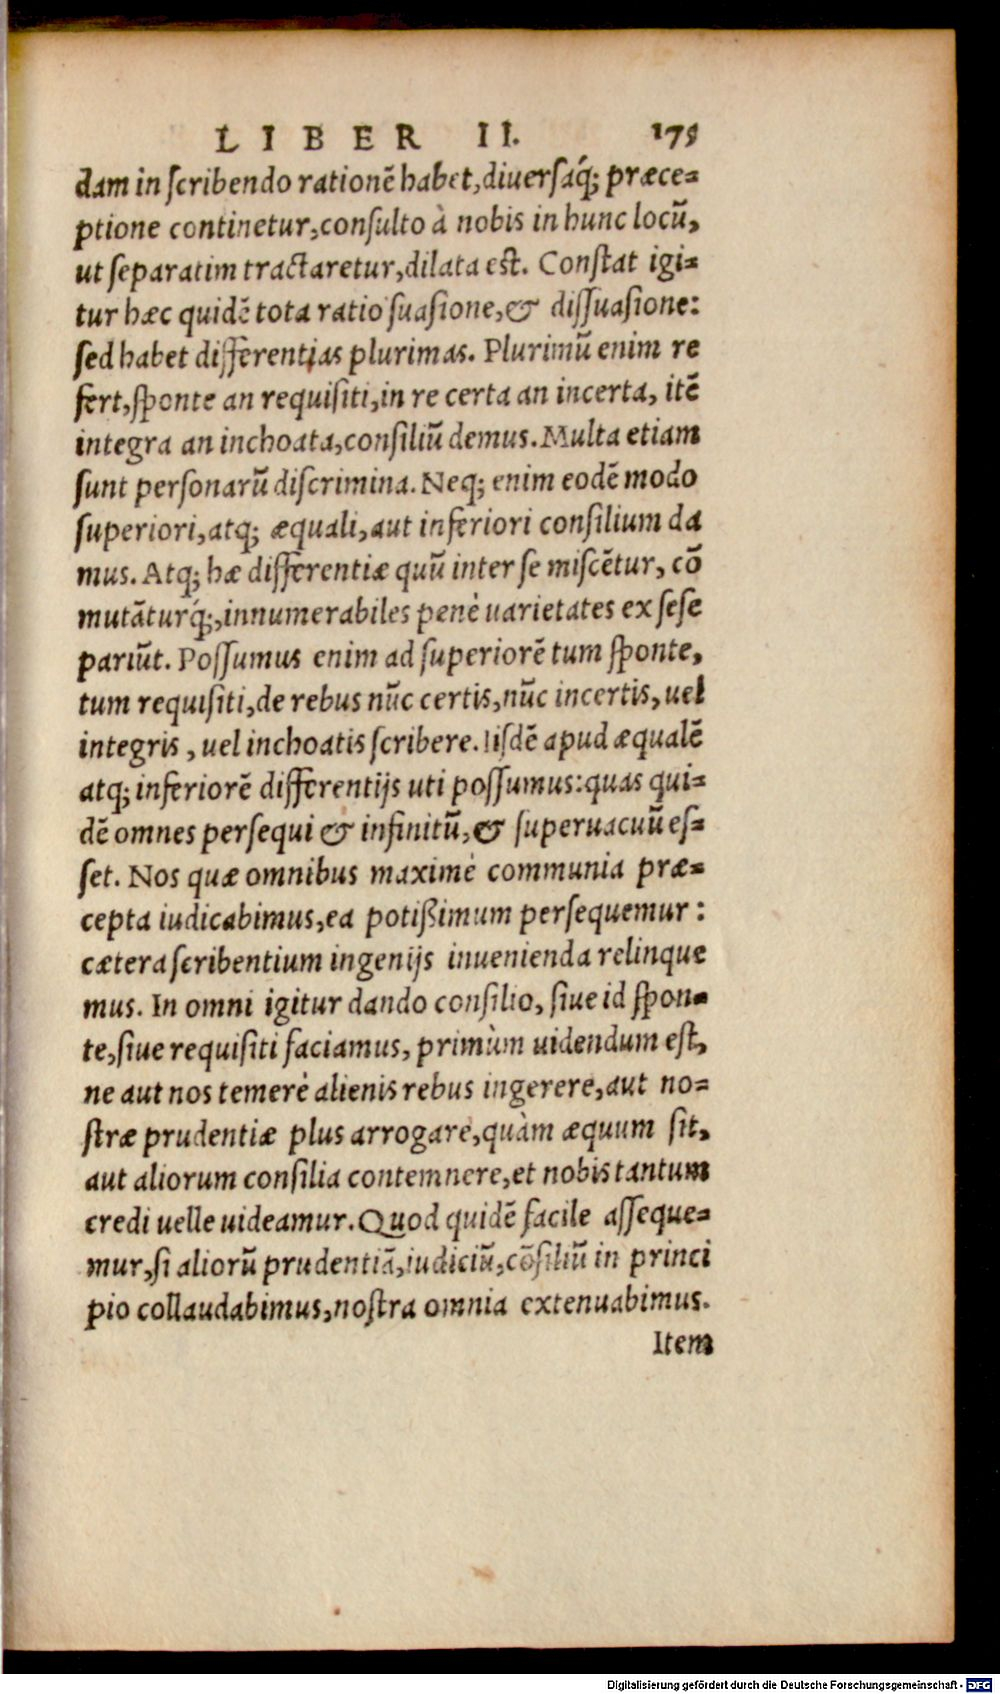 LIBER II. 175
dam in scribendo rationē habet, diuersáq; præce-
ptione continetur, consulto à nobis in hunc locū,
ut separatim tractaretur, dilata est. Constat igi-
tur hæc quidē tota ratio suasione, & dissuasione:
sed habet differentias plurimas. Plurimū enim re
fert, sponte an requisiti, in re certa an incerta, itē
integra an inchoata, consiliū demus. Multa etiam
sunt personarū discrimina. Neq; enim eodē modo
superiori, atq; æquali, aut inferiori consilium da
mus. Atq; hæ differentiæ quū inter se miscētur, cō
mutāturq́;, innumerabiles penè uarietates ex sese
pariūt. Possumus enim ad superiorē tum sponte,
tum requisiti, de rebus nūc certis, nūc incertis, uel
integris, uel inchoatis scribere. Iisdē apud æqualē
atq; inferiorē differentijs uti possumus: quas qui-
dē omnes persequi & infinitū, & superuacuū es-
set. Nos quæ omnibus maximè communia præ-
cepta iudicabimus, ea potißimum persequemur:
cætera scribentium ingenijs inuenienda relinque
mus. In omni igitur dando consilio, siue id spon-
te, siue requisiti faciamus, primùm uidendum est,
ne aut nos temerè alienis rebus ingerere, aut no-
stræ prudentiæ plus arrogare, quàm æquum sit,
aut aliorum consilia contemnere, et nobis tantum
credi uelle uideamur. Quod quidē facile asseque-
mur, si aliorū prudentiā, iudiciū, cōsiliū in princi
pio collaudabimus, nostra omnia extenuabimus.
Item
Digitalisierung gefördert durch die Deutsche Forschungsgemeinschaft - DFG